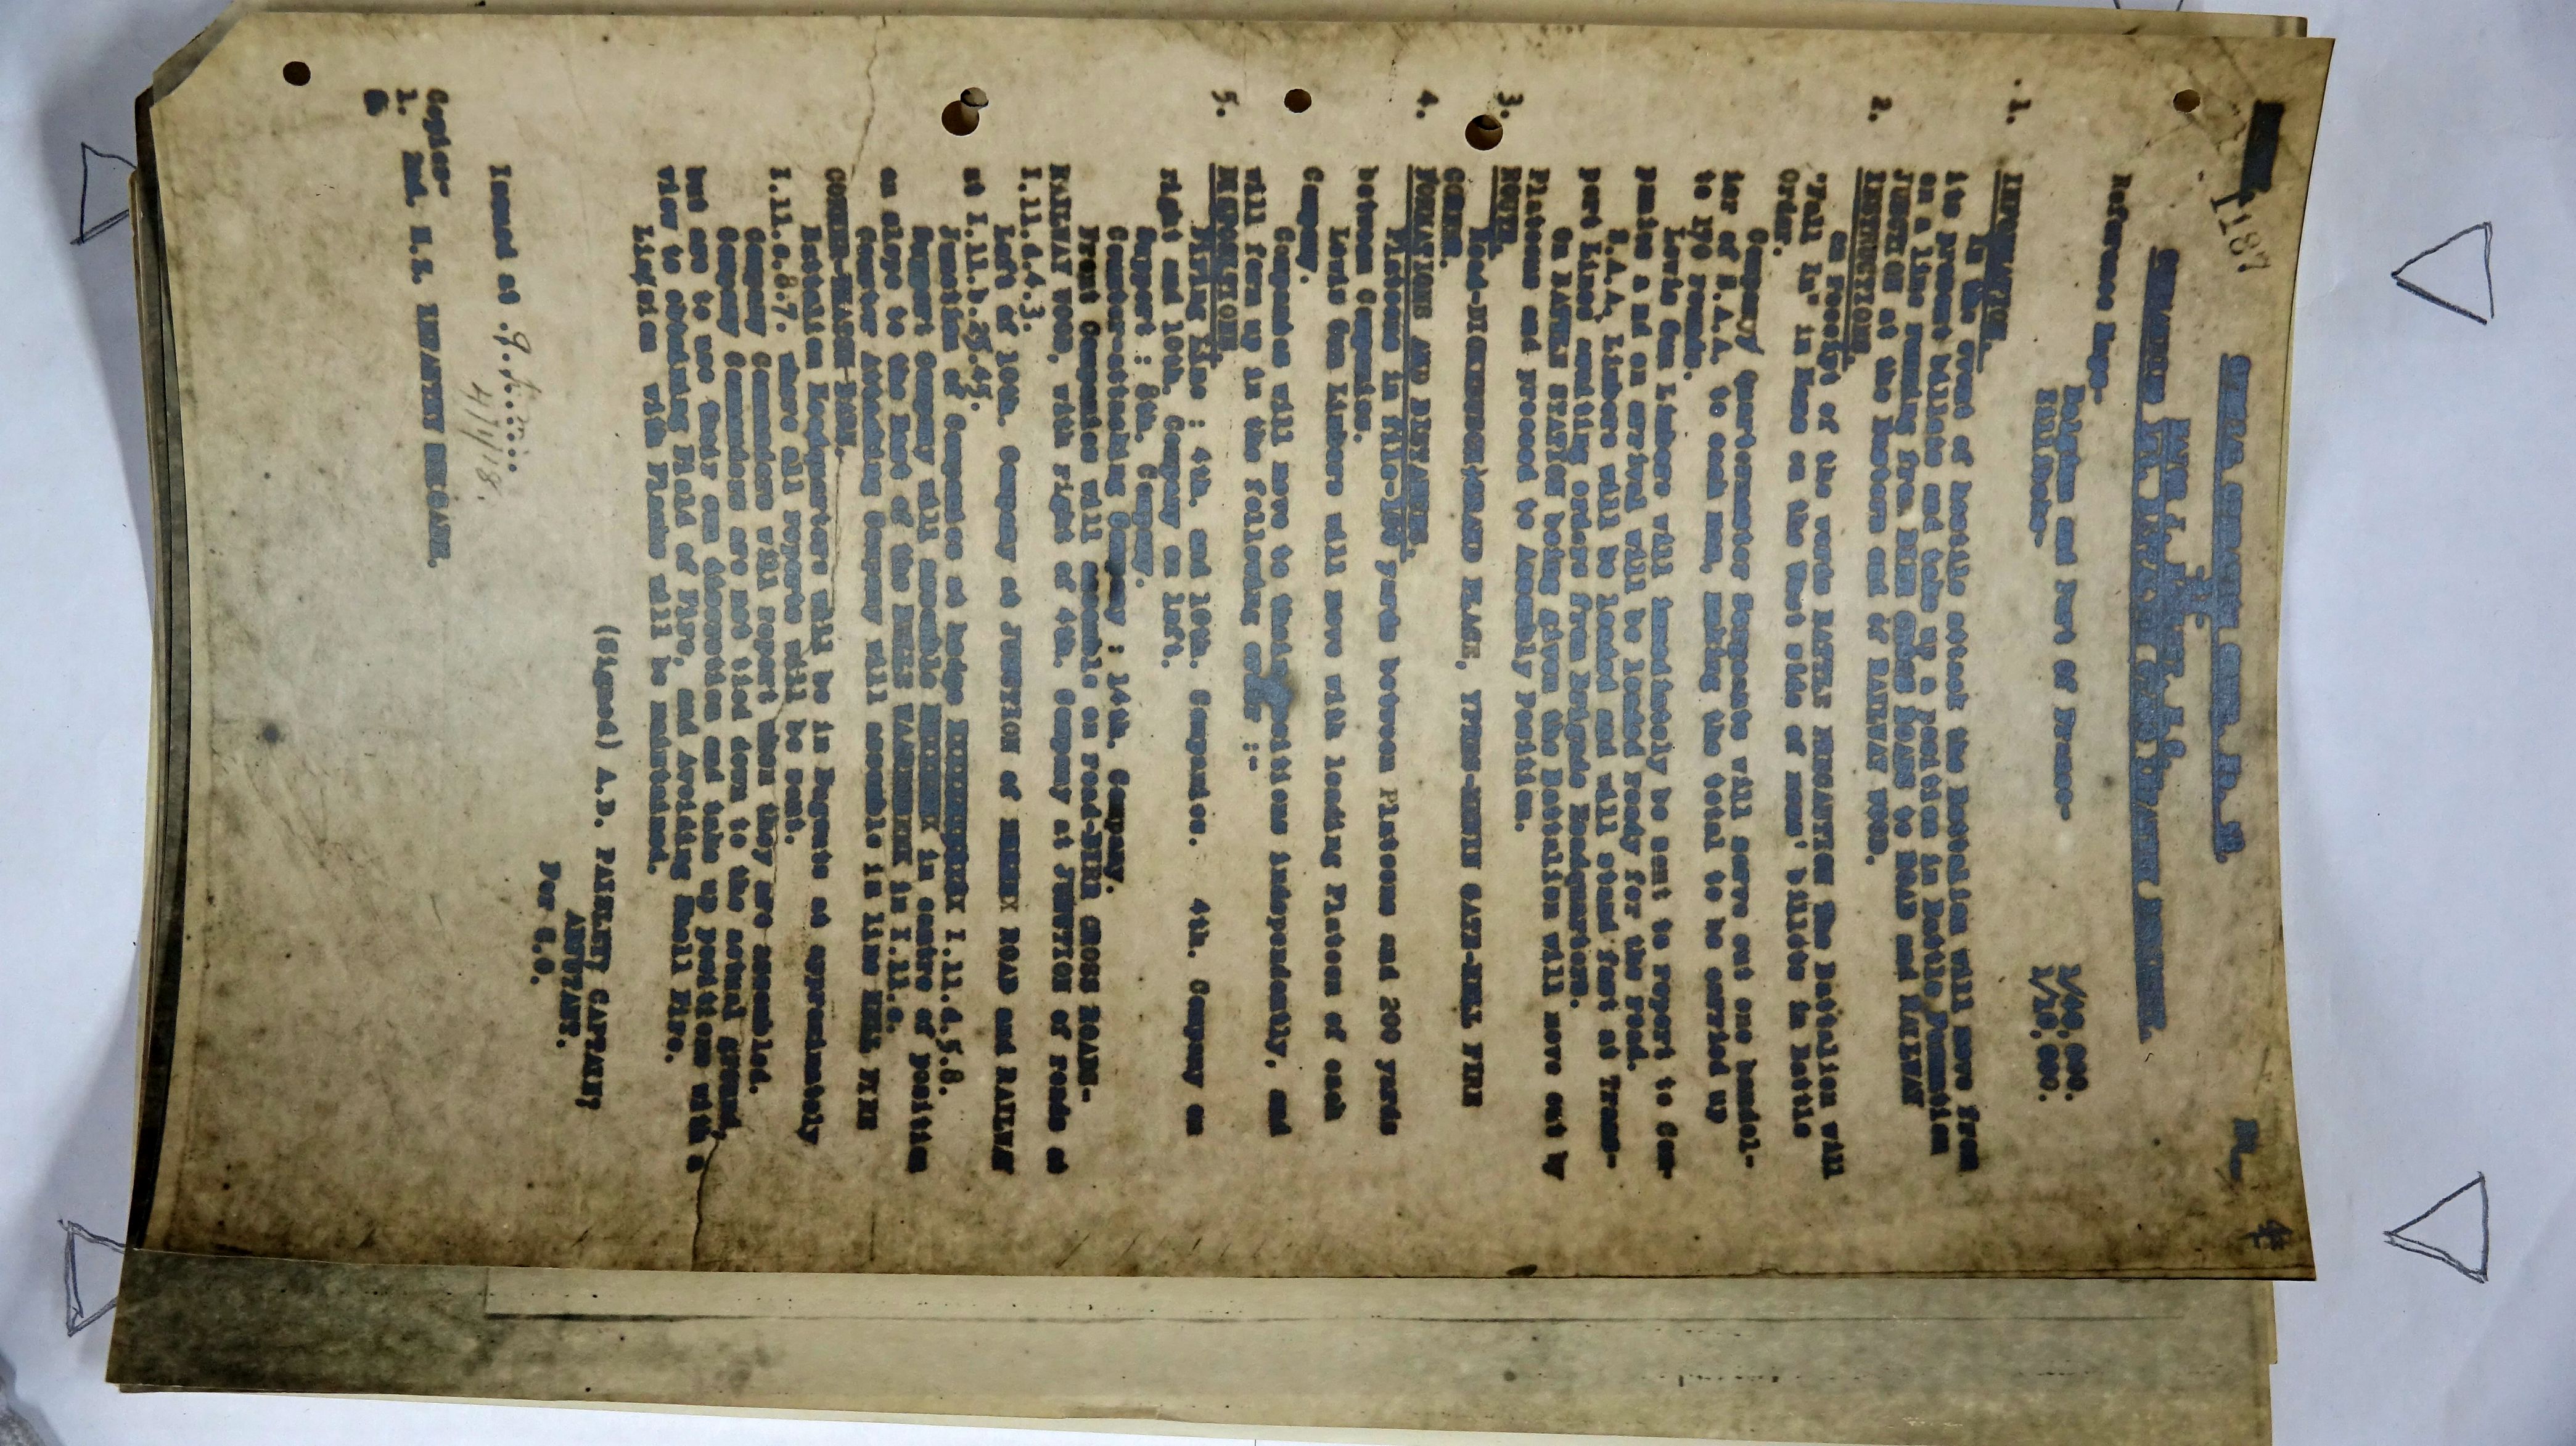 1187
4
Reference Maps-
Belgium and Part of France-
1/40,000.
Zillebeke-
1/10,000.
1. INFORMATION.
In the event of hostile attack the Battalion will move from
its present billets and take up a position in Battle Formation
on a line running from HELL CROSS ROADS to ROAD and RAILWAY
JUNCTION at the Eastern end of RAILWAY WOOD.
2. INSTRUCTIONS.
On Receipt of the words BATTLE the Battalion will
"Fall in" in Line on the that side of mens' billets in Battle
Order.
Company Quartermaster Sergeants will serve out one bandol-
ier of S.A.A. to each man, making the total to be carried up
to 170 rounds.
Lewis Gun Limbers will immediately be sent to report to Com-
panies and on arrival will be loaded ready for the road.
S.A.A. Limbers will be loaded and will stand fast at Trans-
port Lines awaiting orders from Brigade Headquarters.
On BATTLE STATION being given the Battalion will move out by
Platoons and proceed to Assembly Position.
3. ROUTE.
Road-DICKEBUSCH, YPRES-MENIN GATE-HELL FIRE
CORNER.
4. FORMATIONS AND DISTANCES.
Platoons in file-100 yards between Platoons and 200 yards
between Companies.
Lewis Gun Limbers will move with leading Platoon of each
Company.
Companies will move to their positions independently, and
will form up in the following order :-
5. DISPOSITIONS
Firing Line : 4th. and 10th. Companies. 4th. Company on
right and 10th. Company on left.
Support : 8th. Company.
Counter-attacking Company : 14th. Company.
Front Companies will assemble on road- CROSS ROADS-
RAILWAY WOOD, with right of 4th. Company at JUNCTION of roads at
I.11.d.4.3.
Left of 10th. Company at JUNCTION of ROAD and RAILWAY
at I.11.b.25.45.
Junction of Companies at hedge I.11.d.5.8.
Support Company will assemble in centre of position
on slope to the East of the in I.11.c.
Counter Attacking Company will assemble in line HELL FIRE
CORNER-
Battalion Headquarters will be in Dugouts at approximately
I.11.c.8.7. where all reports will be sent.
Company Commanders will report when they are assembled.
Company Commanders are not tied down to the actual ground,
but are to use their own discretion and take up positions with a
view to obtaining Field of Fire, and Avoiding Shell Fire.
Liaison with Flanks will be maintained.
(Signed) A.D. PAISLEY; CAPTAIN;
ADJUTANT.
For C.O.
Issued at
4/1/18.
Copies-
1. 2nd. N.Z. INFANTRY BRIGADE.